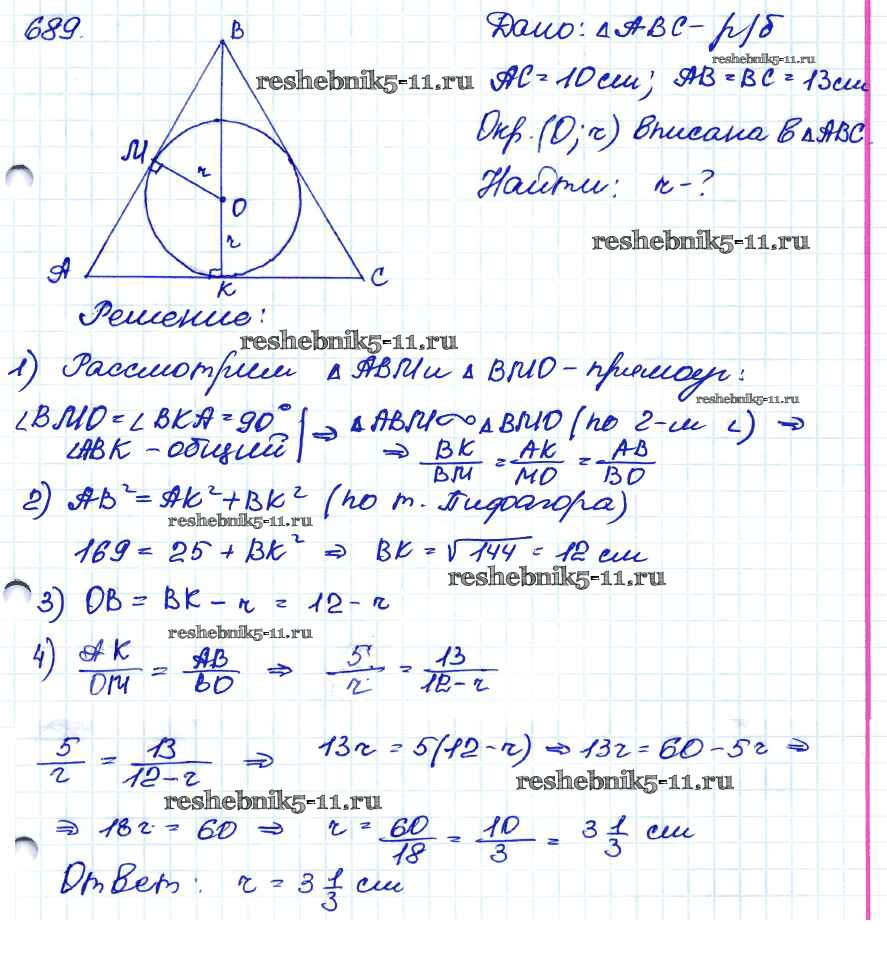 689.
Дано: △ABC - р/б
reshebnik5-11.ru
reshebnik5-11.ru
AC = 10 см; AB = BC = 13 см
Окр. (O; r) вписана в △ABC.
Найти: r - ?
reshebnik5-11.ru
B
M
r
O
r
A
K
C
Решение:
reshebnik5-11.ru
1) Рассмотрим △ ABM и △ BMO - прямоуг:
reshebnik5-11.ru
∠BMO = ∠BKA = 90° | ⇒ △ABM ∾ △BMO (по 2-м ∠) ⇒
∠ABK - общий | ⇒ BK/BM = AK/MO = AB/BO
2) AB² = AK² + BK² (по т. Пифагора)
reshebnik5-11.ru
169 = 25 + BK² ⇒ BK = √144 = 12 см
reshebnik5-11.ru
3) OB = BK - r = 12 - r
reshebnik5-11.ru
4) AK/OM = AB/BO ⇒ 5/r = 13/12-r
5/r = 13/12-r ⇒ 13r = 5(12-r) ⇒ 13r = 60 - 5r ⇒
reshebnik5-11.ru
reshebnik5-11.ru
⇒ 18r = 60 ⇒ r = 60/18 = 10/3 = 3 1/3 см
Ответ: r = 3 1/3 см